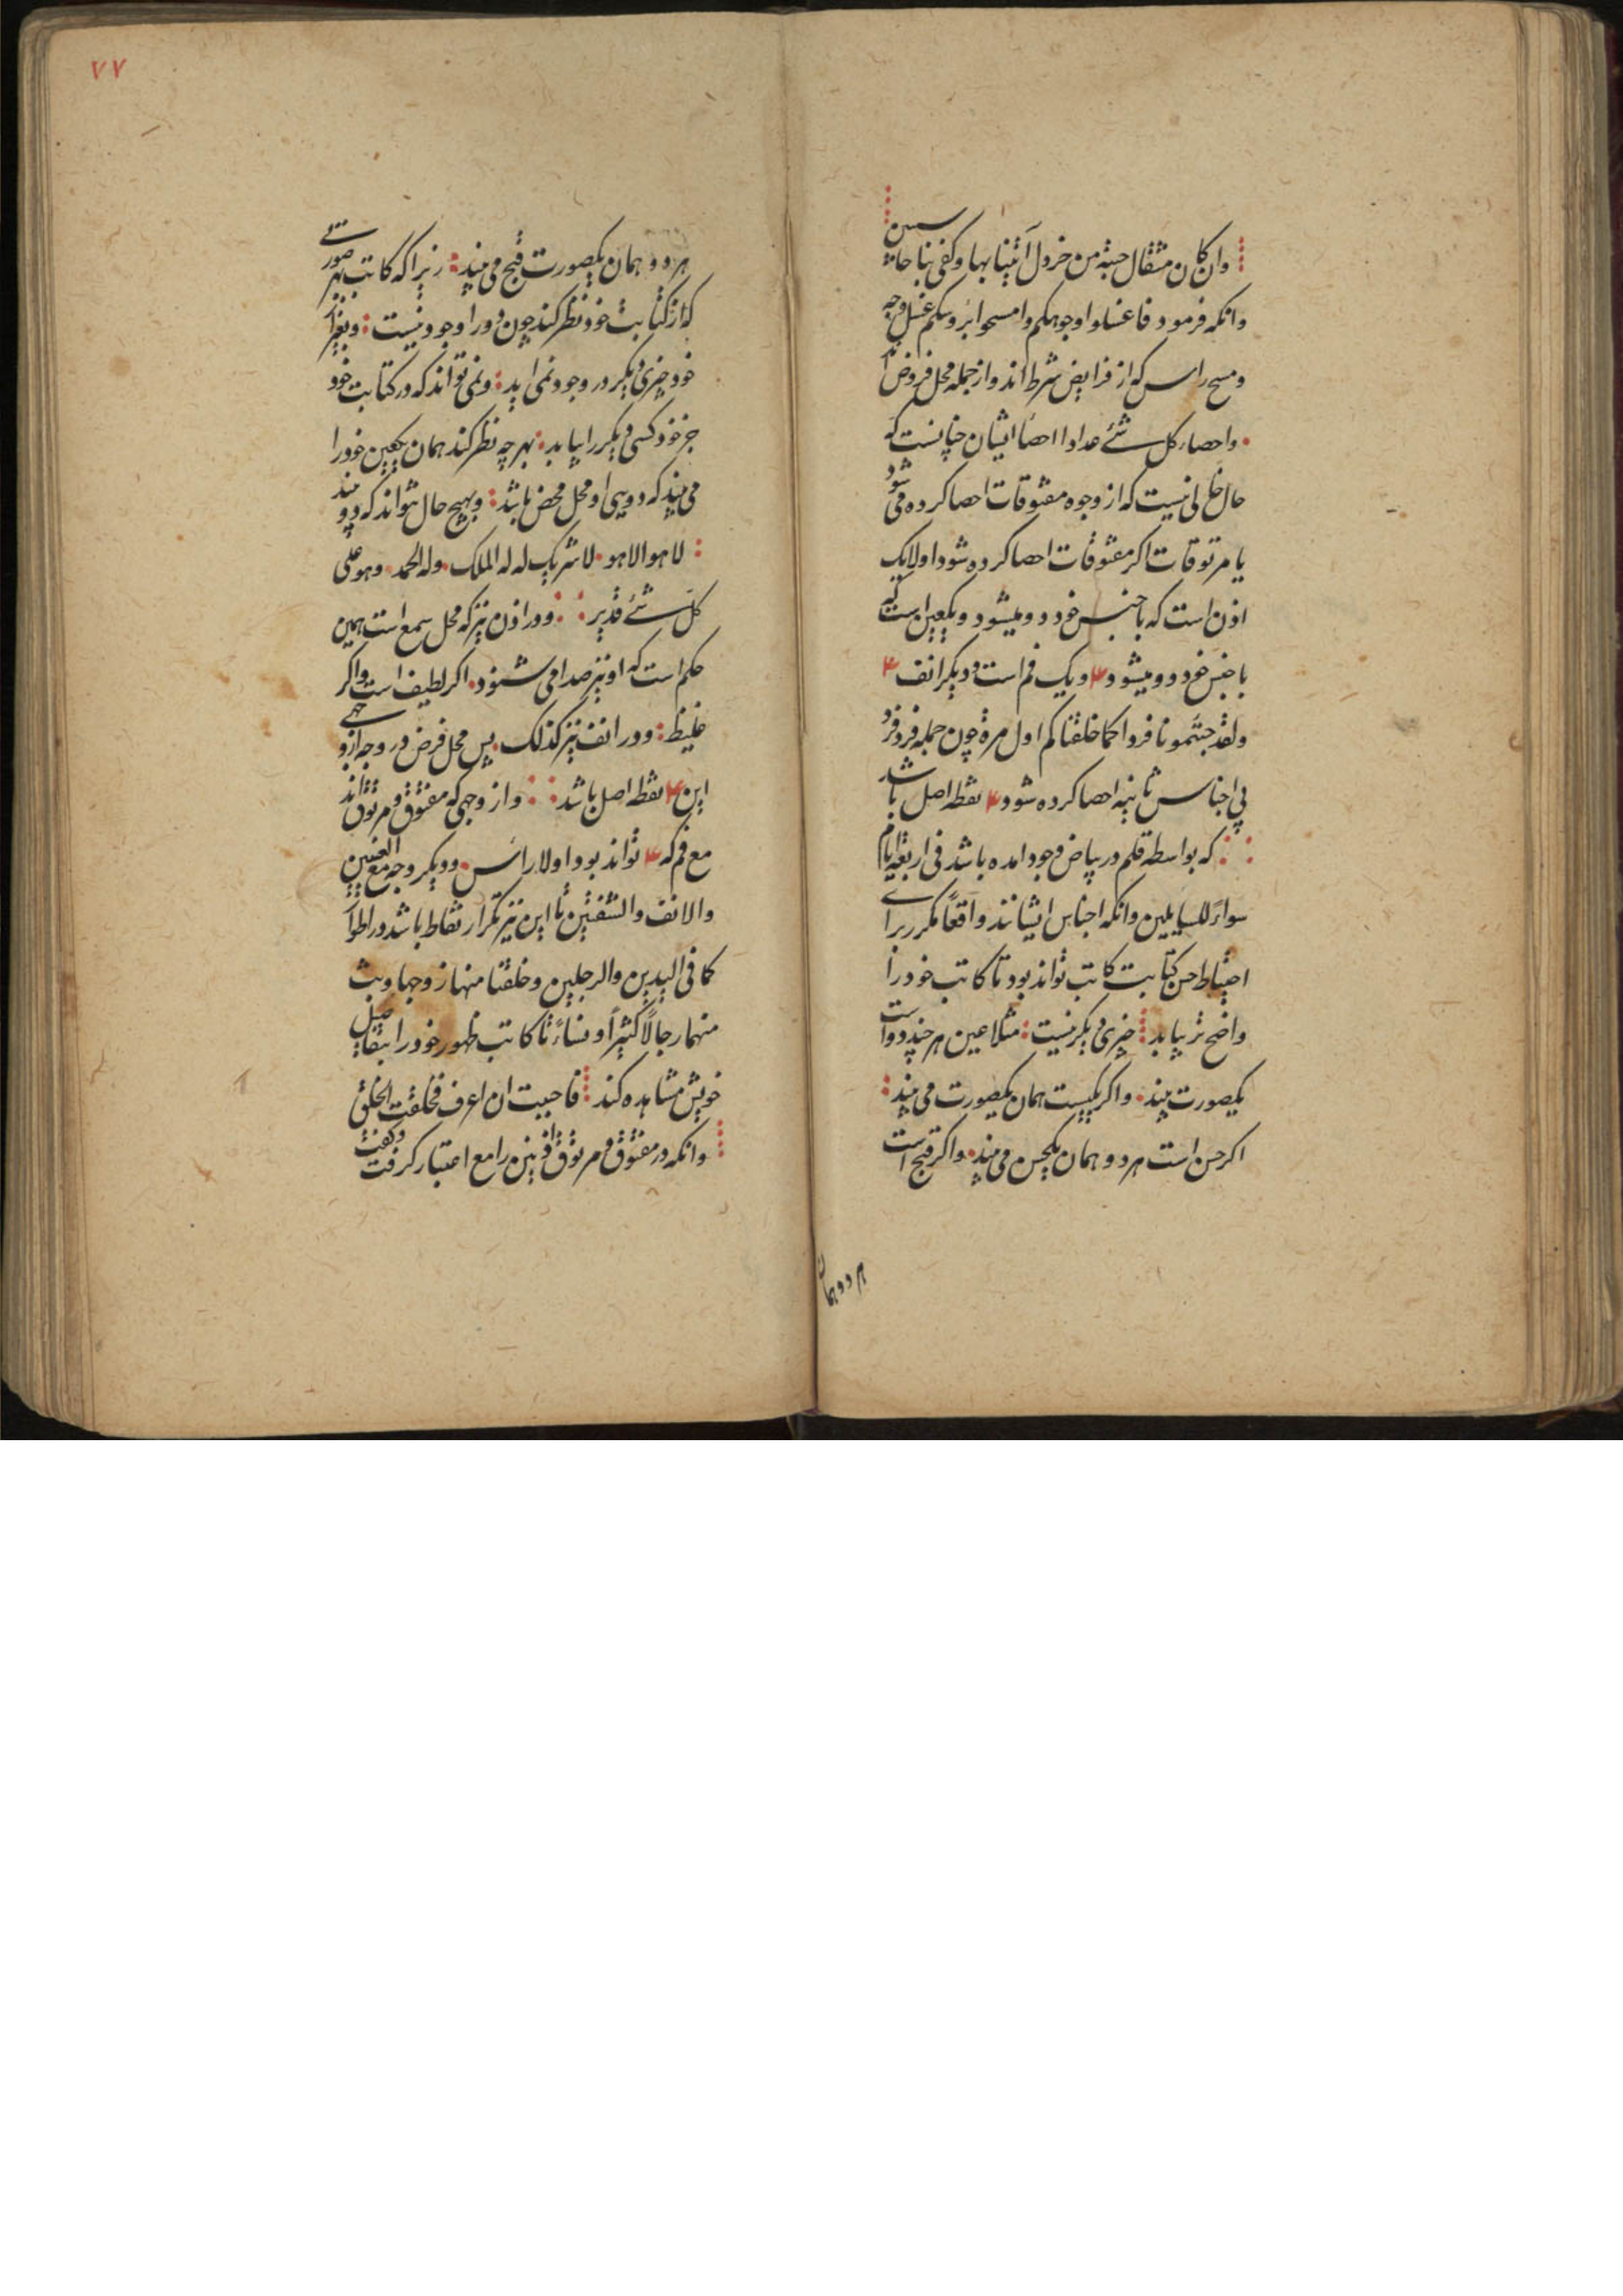 وان کان مثقال حبة من خردل آتینا بها وکفی بنا حاسبین
وانکه فرمود فاغسلوا وجوهکم وامسحوا بروسکم غسل وجه
ومسح راس که از فرایض شرط اند واز جمله محل فروض
واحصاء کل شئ عددا احصا ایشان چنانست که
حال خالی نیست که از وجوه مفتوقات احصا کرده می شود
یا مرتوقات اکر مفتوقات احصا کرده شود اولا یک
اذن است که با جنس خود دو میشود ویک عین است که
با جنس خود دو میشود ۴ ویک فم است ودیکر انف ۴
ولقد جئتمونا فرادا کما خلقناکم اول مرة چون جمله فرد فرد
بی اجناس ثانیه احصا کرده شود ۴ نقطه اصل باشد
که بواسطه قلم در بیاض وجود امده باشد فی اربعة ایام
سواء للسایلین وانکه اجناس ایشانند واقعا مکرر برای
احتیاط حسن کتابت کاتب تواند بود تا کاتب خود را
واضح تر بیابد چیزی دیکر نیست مثلا عین هرچند دو است
یکصورت بیند واکر یکیست همان یکصورت می بیند
اکر حسن است هردو همان یکحسن می بیند واکر قبیح است
هردو هما
۷۷
هردو همان یکصورت قبیح می بیند زیرا که کاتب بهر صورتی
که از کتابت خود نظر کند چون دو را وجود نیست وبغیر از
خود چیزی دیکر در وجود نمی اید ونمی تواند که در کتابت خود
جز خود کسی دیکر را بیابد بهر چه نظر کند همان یکعین خود را
می بیند که دویی او محل محض باشد وبهیچ حال نتواند که دو بیند
لا هو الا هو لا شریک له له الملک وله الحمد وهو علی
کل شئ قدیر ودر اذن نیز که محل سمع است همین
حکم است که او نیز صدا می شنود اکر لطیف است واکر
غلیظ ودر انف نیز کذلک پس محل فرض در وجه از وجهی
این ۴ نقطه اصل باشد واز وجهی که مفتوق ومرتوق اند
مع فم که ۴ تواند بود اولا راس ودیکر وجه مع العینین
والانف والشفتین تا این نیز تکرار نقاط باشد در اطوار
کما فی الیدین والرجلین وخلقنا منها زوجها وبث
منهما رجالا کثیرا ونساء تا کاتب ظهور خود را بتفاصیل
خویش مشاهده کند فاحببت ان اعرف فخلقت الخلق
وانکه در مفتوق ومرتوق اذنین را مع اعتبار کرفت وکفت